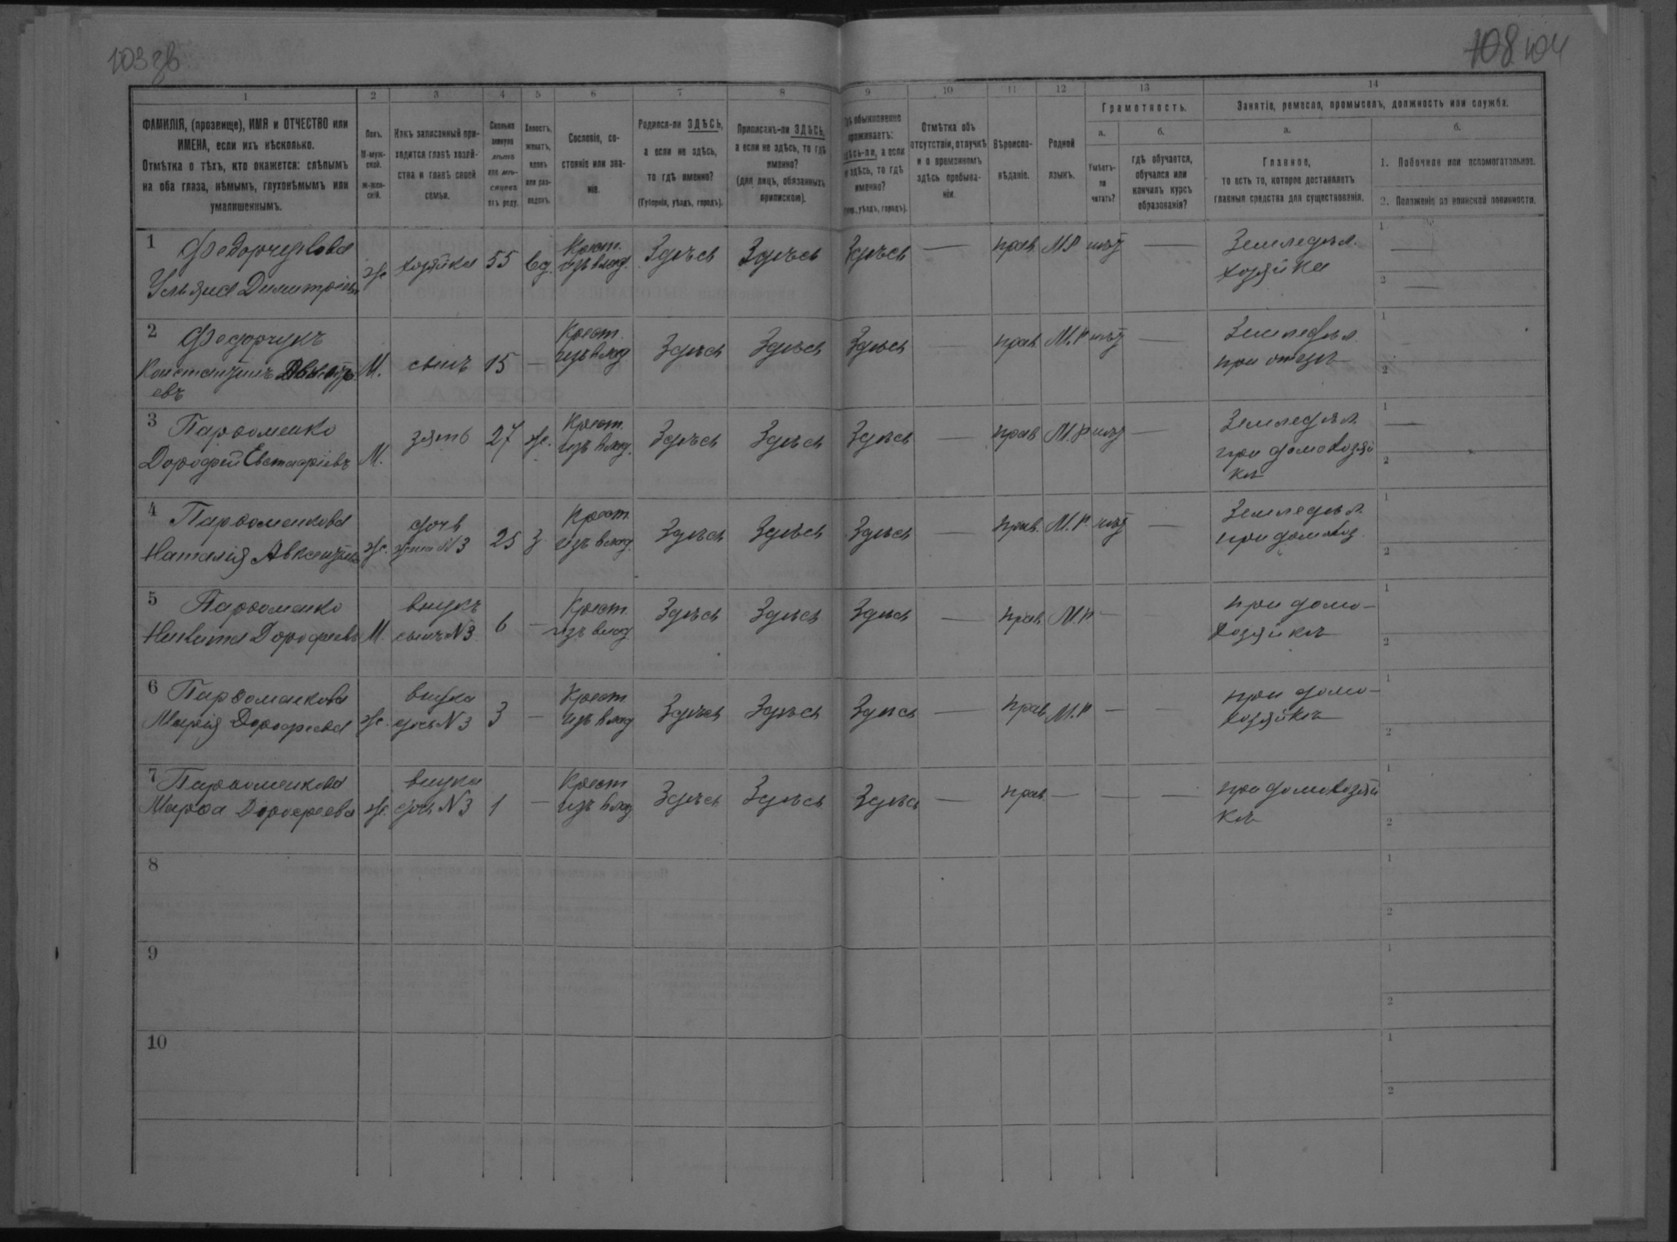 103 об
108 104
1 2 3 4 5 6 7 8 9 10 11 12 13 14
ФАМИЛІЯ, (прозвище), ИМЯ и ОТЧЕСТВО или ИМЕНА, если ихъ нѣсколько.
Отмѣтка о тѣхъ, кто окажется: слѣпымъ на оба глаза, нѣмымъ, глухонѣмымъ или умалишеннымъ.
Полъ.
М-муж-
ской.
ж-жен-
скій.
Какъ записанный при-
ходится главѣ хозяй-
ства и главѣ своей
семьи.
Сколько
минуло
лѣтъ
или мѣ-
сяцевъ
отъ роду.
Холостъ,
женатъ,
вдовъ
или раз-
веденъ.
Сословіе, со-
стояніе или зва-
ніе.
Родился-ли ЗДѢСЬ,
а если не здѣсь,
то гдѣ именно?
(Губернія, уѣздъ, городъ).
Приписанъ-ли ЗДѢСЬ,
а если не здѣсь, то гдѣ
именно?
(для лицъ, обязанныхъ
припискою).
Гдѣ обыкновенно
проживаетъ:
здѣсь-ли, а если
не здѣсь, то гдѣ
именно?
(Губ., уѣздъ, городъ).
Отмѣтка объ
отсутствіи, отлучкѣ
и о временномъ
здѣсь пребыва-
ніи.
Вѣроиспо-
вѣданіе.
Родной
языкъ.
Грамотность.
а. б.
Умѣетъ-
ли
читать?
гдѣ обучается,
обучался или
кончилъ курсъ
образованія?
Занятіе, ремесло, промыселъ, должность или служба.
а. б.
Главное,
то есть то, которое доставляетъ
главныя средства для существованія.
1. Побочное или вспомогательное.
2. Положеніе по воинской повинности.
1 Федорчукова
Ульяна Димитріева ж. хозяйка 55 вд. Крест. изъ влад. Здѣсь Здѣсь Здѣсь — прав. М.Р нѣт — Земледѣл. хозяйка 1 — 2 —
2 Федорчукъ
Константинъ
евъ М. сынъ 15 — Крест. изъ влад. Здѣсь Здѣсь Здѣсь — прав. М.Р нѣт — Земледѣл. при 1 2
3 Парфоменко
Дорофей Евстафіевъ М. зять 27 ж. Крест. изъ влад. Здѣсь Здѣсь Здѣсь — прав. М.Р нѣт — Земледѣл. при домохозяй
кѣ 1 — 2
4 Парфоменкова
Наталія ж. дочь жена N3 25 з Крест. изъ влад. Здѣсь Здѣсь Здѣсь — прав. М.Р нѣт — Земледѣл. при домохоз. 1 2
5 Парфоменко
Никита Дорофіевъ М внукъ сынъ N3 6 — Крест. изъ влад Здѣсь Здѣсь Здѣсь — прав. М.Р — — при домо-
хозяйкѣ 1 2
6 Парфоменкова
Марія Дорофіева ж. внука дочь N3 3 — Крест изъ влад Здѣсь Здѣсь Здѣсь — прав. М.Р — — при домо-
хозяйкѣ 1 2
7 Парфоменкова
Марфа Дорофеева ж. внука дочь N3 1 — Крест изъ влад Здѣсь Здѣсь Здѣсь — прав — — — при домохозяй
кѣ 1 2
8 1 2
9 1 2
10 1 2